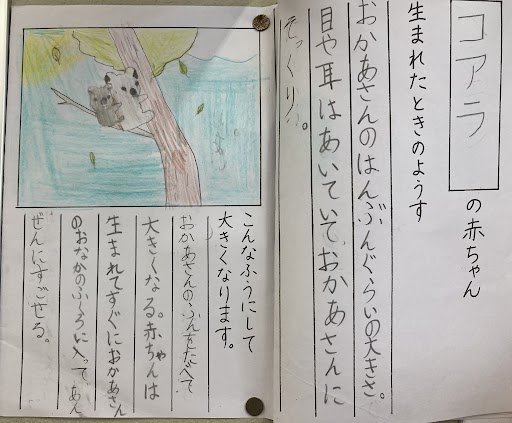 コアラ
の赤ちゃん
生まれたときのようす
おかあさんのはんぶんぐらいの大きさ。
目や耳はあいていて、おかあさんに
そっくり。
こんなふうにして
大きくなります。
おかあさんのふんをたべて
大きくなる。赤ちゃんは
生まれてすぐにおかあさん
のおなかのふくろに入って、あん
ぜんにすごせる。